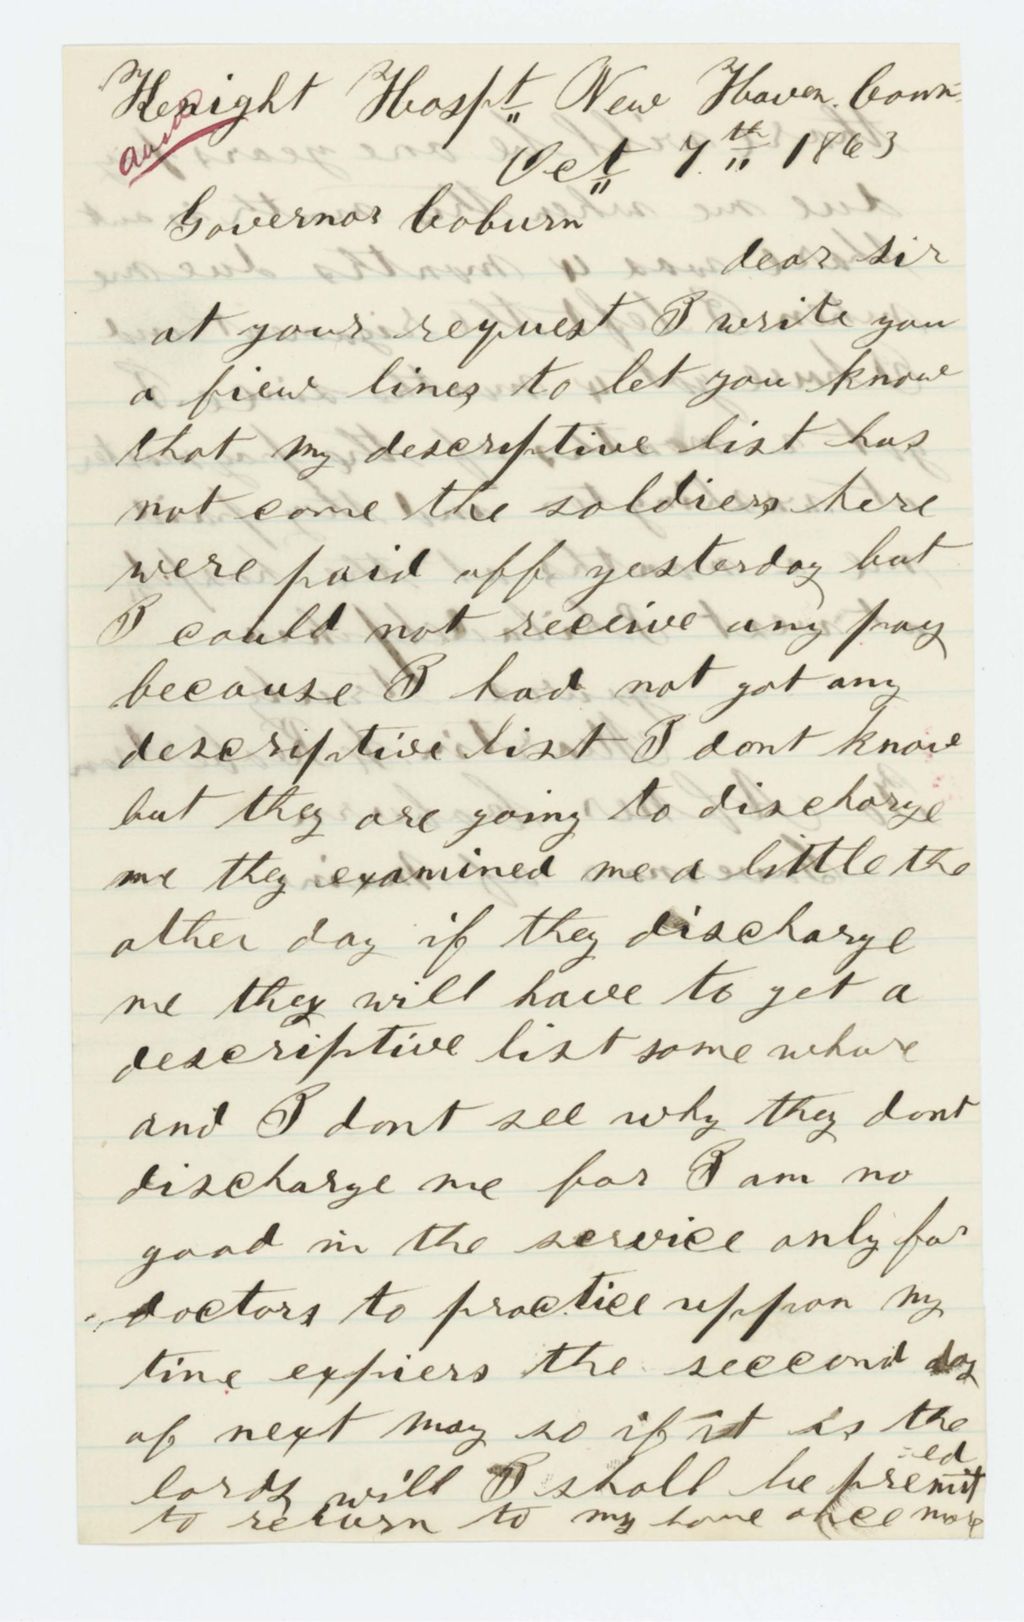 Kenight Hospt New Haven. Conn.
Ansd
Oct 7th 1863
Governor Coburn
dear sir
at your request I write you
a fiew lines to let you know
that my descriptive list has
not come the soldiers here
were paid off yesterday but
I could not receive any pay
because I had not got any
descriptive list I dont know
but they are going to discharge
me they examined me a little the
other day if they discharge
me they will have to get a
descriptive list some whare
and I dont see why they dont
discharge me for I am no
good in the service only for
doctors to practice uppon my
time expiers the seccond day
of next may so if it is the
lords will I shall be premited
to return to my home once more